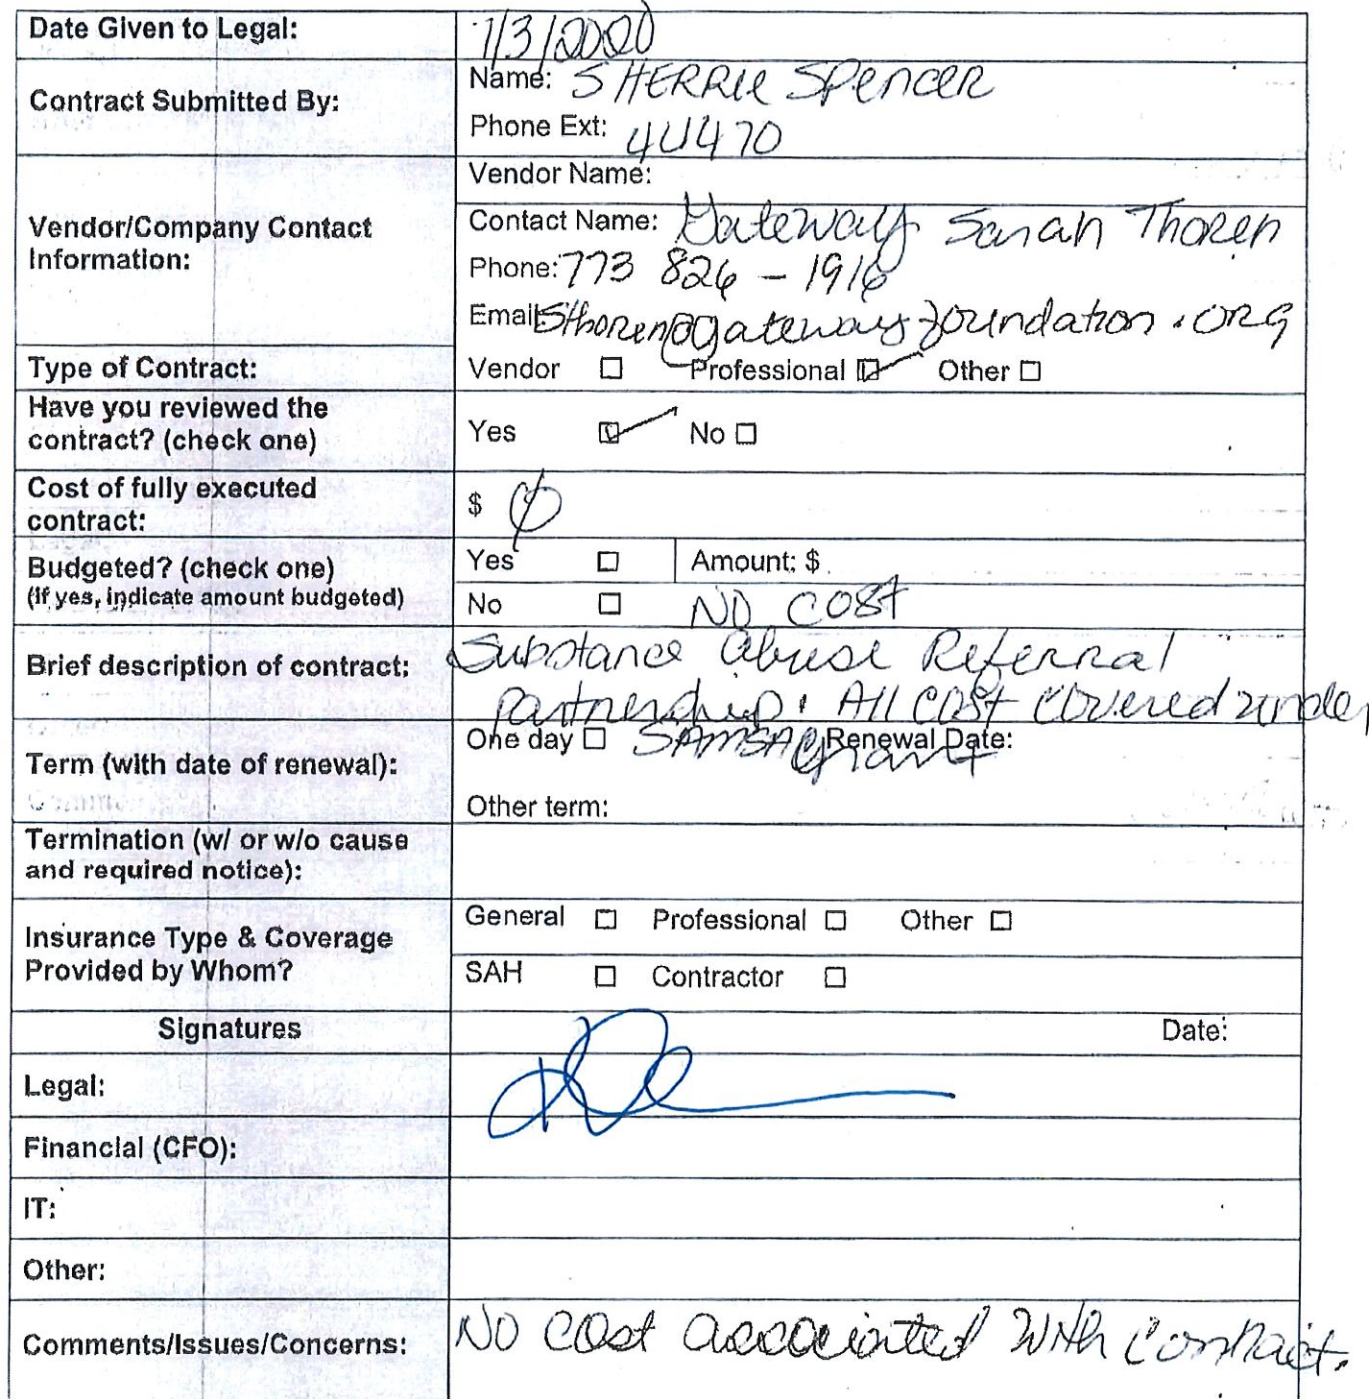 Date Given to Legal: 7/3/2020
Contract Submitted By:
Name: SHERRIE SPENCER
Phone Ext: 44470
Vendor/Company Contact Information:
Vendor Name:
Contact Name: Gateway Sarah Thoren
Phone: 773 826 - 1916
Email: Sthoren@gatewayfoundation.org
Type of Contract: Vendor ☐ Professional ☑ Other ☐
Have you reviewed the
contract? (check one) Yes ☑ No ☐
Cost of fully executed
contract: $ 0
Budgeted? (check one)
(If yes, indicate amount budgeted)
Yes ☐ Amount: $
No ☐ NO COST
Brief description of contract: Substance abuse Referral
partnership. All cost covered under
SAMSA grant
Term (with date of renewal): One day ☐ Renewal Date:
Other term:
Termination (w/ or w/o cause
and required notice):
Insurance Type & Coverage
Provided by Whom?
General ☐ Professional ☐ Other ☐
SAH ☐ Contractor ☐
Signatures Date:
Legal:
Financial (CFO):
IT:
Other:
Comments/Issues/Concerns: NO cost associated with contract.